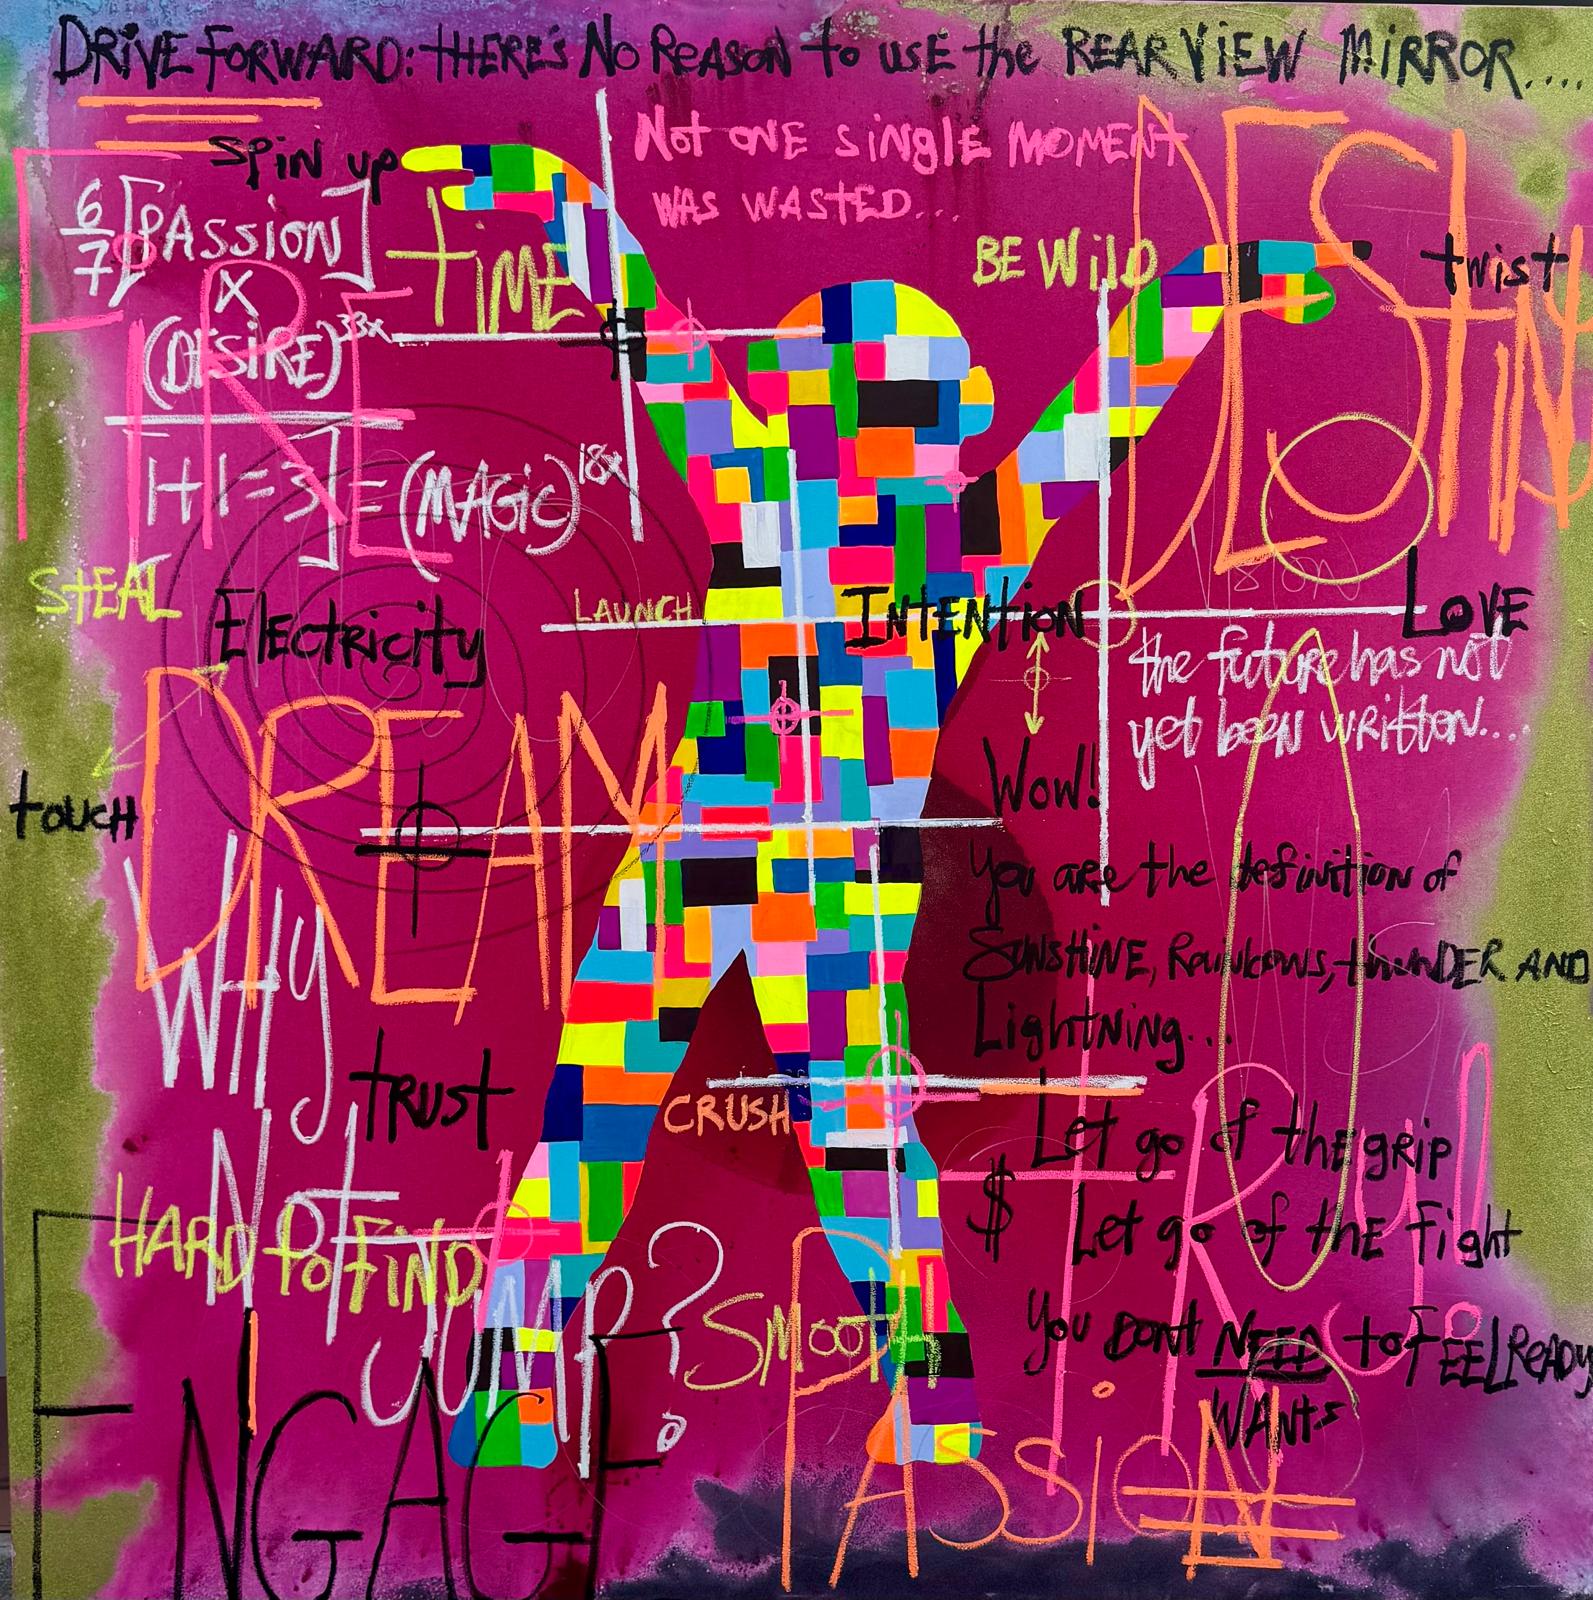 DRIVE FORWARD: THERE'S NO REASON to USE the REARVIEW MIRROR....
Spin up
Not ONE SINGLE MOMENT
WAS WASTED...
DESTINY
FIRE
6/7 [PASSION]
X
(DESIRE)33x
[1+1=3] = (MAGIC)18x
TIME
BE WilD
twist
STEAL
Electricity
LAUNCH
INTENTION
LOVE
the future has not
yet been written...
DREAM
touch
Wow!
You are the definition of
SUNSHINE, Rainbows, thunDER AND
Lightning...
WHy
Not
JUMP?
tRUST
CRUSH
Let go of the grip
$ Let go of the Fight
TRUST
HARD to FIND
SMOOTH
You Dont NEED to FEEL READy
WANTS
ENGAGE
PASSION